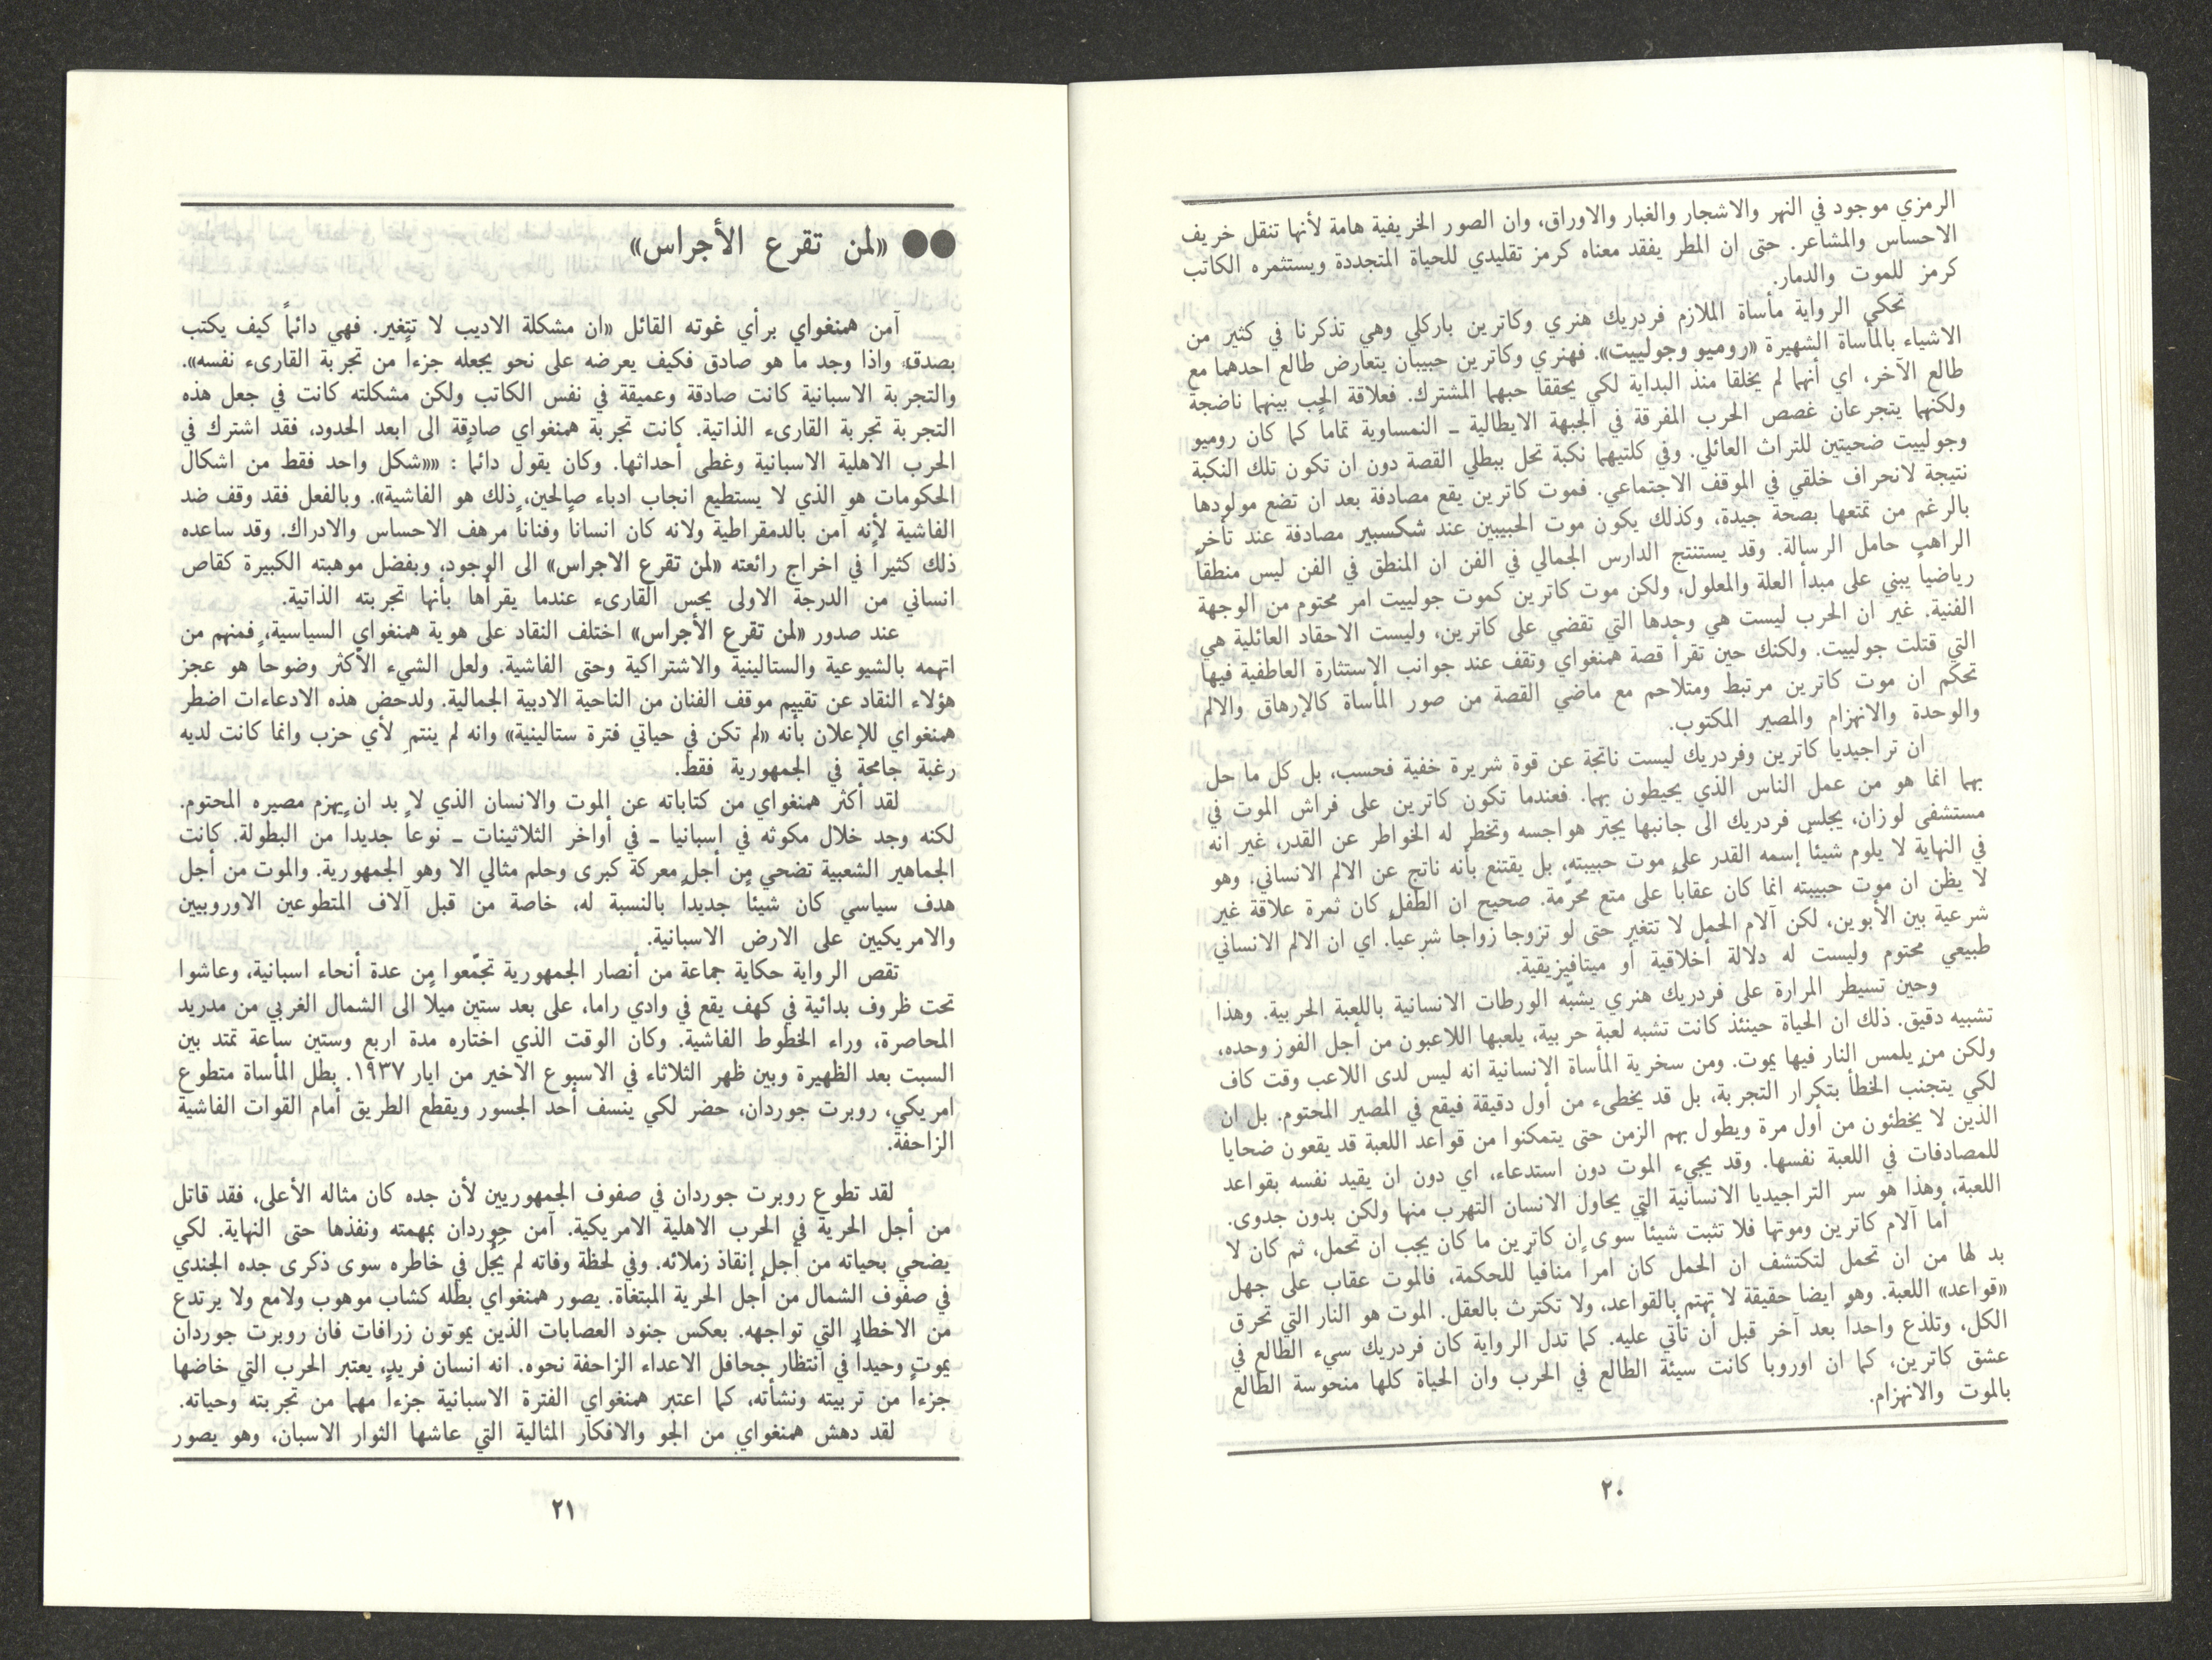 الرمزي موجود في النهر والاشجار والغبار والاوراق، وان الصور الخريفية هامة لأنها تنقل خريف
الاحساس والمشاعر. حتى ان المطر يفقد معناه كرمز تقليدي للحياة المتجددة ويستثمره الكاتب
كرمز للموت والدمار.
تحكي الرواية مأساة الملازم فردريك هنري وكاترين باركلي وهي تذكرنا في كثير من
الاشياء بالمأساة الشهيرة «روميو وجولييت». فهنري وكاترين حبيبان يتعارض طالع احدهما مع
طالع الآخر، اي أنهما لم يخلقا منذ البداية لكي يحققا حبهما المشترك. فعلاقة الحب بينهما ناضجة
ولكنهما يتجرعان غصص الحرب المفرقة في الجبهة الايطالية ـ النمساوية تماماً كما كان روميو
وجولييت ضحيتين للتراث العائلي. وفي كلتيهما نكبة تحل ببطلي القصة دون ان تكون تلك النكبة
نتيجة لانحراف خلقي في الموقف الاجتماعي. فموت كاترين يقع مصادفة بعد ان تضع مولودها
بالرغم من تمتعها بصحة جيدة، وكذلك يكون موت الحبيبين عند شكسبير مصادفة عند تأخر
الراهب حامل الرسالة. وقد يستنتج الدارس الجمالي في الفن ان المنطق في الفن ليس منطقاً
رياضياً يبني على مبدأ العلة والمعلول، ولكن موت كاترين كموت جولييت امر محتوم من الوجهة
الفنية. غير ان الحرب ليست هي وحدها التي تقضي على كاترين، وليست الاحقاد العائلية هي
التي قتلت جولييت. ولكنك حين تقرأ قصة همنغواي وتقف عند جوانب الاستثارة العاطفية فيها
تحكم ان موت كاترين مرتبط ومتلاحم مع ماضي القصة من صور المأساة كالإرهاق والالم
والوحدة والانهزام والمصير المكتوب.
ان تراجيديا كاترين وفردريك ليست ناتجة عن قوة شريرة خفية فحسب، بل كل ما حل
بهما انما هو من عمل الناس الذي يحيطون بهما. فعندما تكون كاترين على فراش الموت في
مستشفى لوزان، يجلس فردريك الى جانبها يجتر هواجسه وتخطر له الخواطر عن القدر، غير انه
في النهاية لا يلوم شيئاً إسمه القدر على موت حبيبته، بل يقتنع بأنه ناتج عن الالم الانساني. وهو
لا يظن ان موت حبيبته انما كان عقاباً على متع محرّمة. صحيح ان الطفل كان ثمرة علاقة غير
شرعية بين الأبوين، لكن آلام الحمل لا تتغير حتى لو تزوجا زواجا شرعياً. اي ان الالم الانساني
طبيعي محتوم وليست له دلالة أخلاقية أو ميتافيزيقية.
وحين تسيطر المرارة على فردريك هنري يشبّه الورطات الانسانية باللعبة الحربية. وهذا
تشبيه دقيق. ذلك ان الحياة حينئذ كانت تشبه لعبة حربية، يلعبها اللاعبون من أجل الفوز وحده،
ولكن من يلمس النار فيها يموت. ومن سخرية المأساة الانسانية انه ليس لدى اللاعب وقت كاف
لكي يتجنّب الخطأ بتكرار التجربة، بل قد يخطىء من أول دقيقة فيقع في المصير المحتوم. بل ان
الذين لا يخطئون من أول مرة ويطول بهم الزمن حتى يتمكنوا من قواعد اللعبة قد يقعون ضحايا
للمصادفات في اللعبة نفسها. وقد يجيء الموت دون استدعاء، اي دون ان يقيد نفسه بقواعد
اللعبة، وهذا هو سر التراجيديا الانسانية التي يحاول الانسان التهرب منها ولكن بدون جدوى.
أما آلام كاترين وموتها فلا تثبت شيئاً سوى ان كاترين ما كان يجب ان تحمل، ثم كان لا
بد لها من ان تحمل لتكتشف ان الحمل كان امراً منافياً للحكمة، فالموت عقاب على جهل
«قواعد» اللعبة. وهو ايضا حقيقة لا تهتم بالقواعد، ولا تكترث بالعقل. الموت هو النار التي تحرق
الكل، وتلذع واحداً بعد آخر قبل أن تأتي عليه. كما تدل الرواية كان فردريك سيء الطالع في
عشق كاترين، كما ان اوروبا كانت سيئة الطالع في الحرب وان الحياة كلها منحوسة الطالع
بالموت والانهزام.
٢٠
●● «لمن تقرع الأجراس»
آمن همنغواي برأي غوته القائل «ان مشكلة الاديب لا تتغير. فهي دائماً كيف يكتب
بصدق، واذا وجد ما هو صادق فكيف يعرضه على نحو يجعله جزءاً من تجربة القارىء نفسه».
والتجربة الاسبانية كانت صادقة وعميقة في نفس الكاتب ولكن مشكلته كانت في جعل هذه
التجربة تجربة القارىء الذاتية. كانت تجربة همنغواي صادقة الى ابعد الحدود، فقد اشترك في
الحرب الاهلية الاسبانية وغطى أحداثها. وكان يقول دائماً : ««شكل واحد فقط من اشكال
الحكومات هو الذي لا يستطيع انجاب ادباء صالحين، ذلك هو الفاشية». وبالفعل فقد وقف ضد
الفاشية لأنه آمن بالدمقراطية ولانه كان انساناً وفناناً مرهف الاحساس والادراك. وقد ساعده
ذلك كثيراً في اخراج رائعته «لمن تقرع الاجراس» الى الوجود، وبفضل موهبته الكبيرة كقاص
انساني من الدرجة الاولى يحس القارىء عندما يقرأها بأنها تجربته الذاتية.
عند صدور «لمن تقرع الأجراس» اختلف النقاد على هوية همنغواي السياسية، فمنهم من
اتهمه بالشيوعية والستالينية والاشتراكية وحتى الفاشية. ولعل الشيء الأكثر وضوحاً هو عجز
هؤلاء النقاد عن تقييم موقف الفنان من الناحية الادبية الجمالية. ولدحض هذه الادعاءات اضطر
همنغواي للإعلان بأنه «لم تكن في حياتي فترة ستالينية» وانه لم ينتمِ لأي حزب وانما كانت لديه
رغبة جامحة في الجمهورية فقط.
لقد أكثر همنغواي من كتاباته عن الموت والانسان الذي لا بد ان يهزم مصيره المحتوم.
لكنه وجد خلال مكوثه في اسبانيا ـ في أواخر الثلاثينات ـ نوعاً جديداً من البطولة. كانت
الجماهير الشعبية تضحي من أجل معركة كبرى وحلم مثالي الا وهو الجمهورية. والموت من أجل
هدف سياسي كان شيئاً جديداً بالنسبة له، خاصة من قبل آلاف المتطوعين الاوروبيين
والامريكيين على الارض الاسبانية.
تقص الرواية حكاية جماعة من أنصار الجمهورية تجمّعوا من عدة أنحاء اسبانية، وعاشوا
تحت ظروف بدائية في كهف يقع في وادي راما، على بعد ستين ميلاً الى الشمال الغربي من مدريد
المحاصرة، وراء الخطوط الفاشية. وكان الوقت الذي اختاره مدة اربع وستين ساعة تمتد بين
السبت بعد الظهيرة وبين ظهر الثلاثاء في الاسبوع الاخير من ايار ١٩٣٧. بطل المأساة متطوع
امريكي، روبرت جوردان، حضر لكي ينسف أحد الجسور ويقطع الطريق أمام القوات الفاشية
الزاحفة.
لقد تطوع روبرت جوردان في صفوف الجمهوريين لأن جده كان مثاله الأعلى، فقد قاتل
من أجل الحرية في الحرب الاهلية الامريكية. آمن جوردان بمهمته ونفذها حتى النهاية. لكي
يضحي بحياته من أجل إنقاذ زملائه. وفي لحظة وفاته لم يَجُل في خاطره سوى ذكرى جده الجندي
في صفوف الشمال من أجل الحرية المبتغاة. يصور همنغواي بطله كشاب موهوب ولامع ولا يرتدع
من الاخطار التي تواجهه. بعكس جنود العصابات الذين يموتون زرافات فان روبرت جوردان
يموت وحيداً في انتظار جحافل الاعداء الزاحفة نحوه. انه انسان فريد، يعتبر الحرب التي خاضها
جزءاً من تربيته ونشأته، كما اعتبر همنغواي الفترة الاسبانية جزءاً مهما من تجربته وحياته.
لقد دهش همنغواي من الجو والافكار المثالية التي عاشها الثوار الاسبان، وهو يصور
٢١